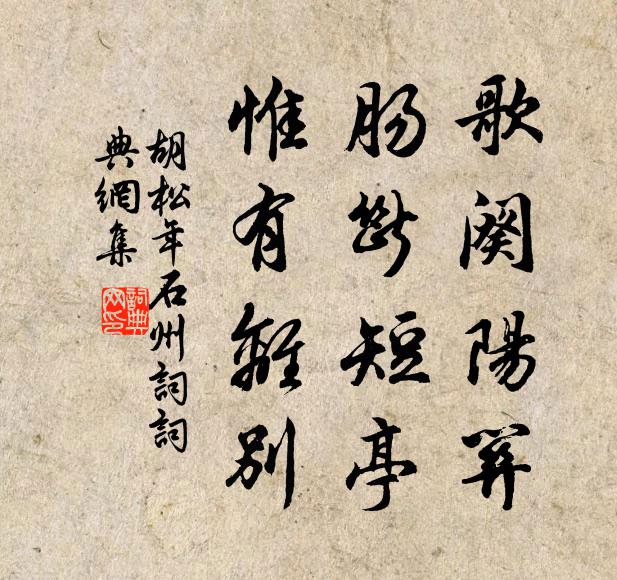 歌闋陽關
腸斷短亭
惟有離別
胡松年石州詞詞
典網集
詞典
网印